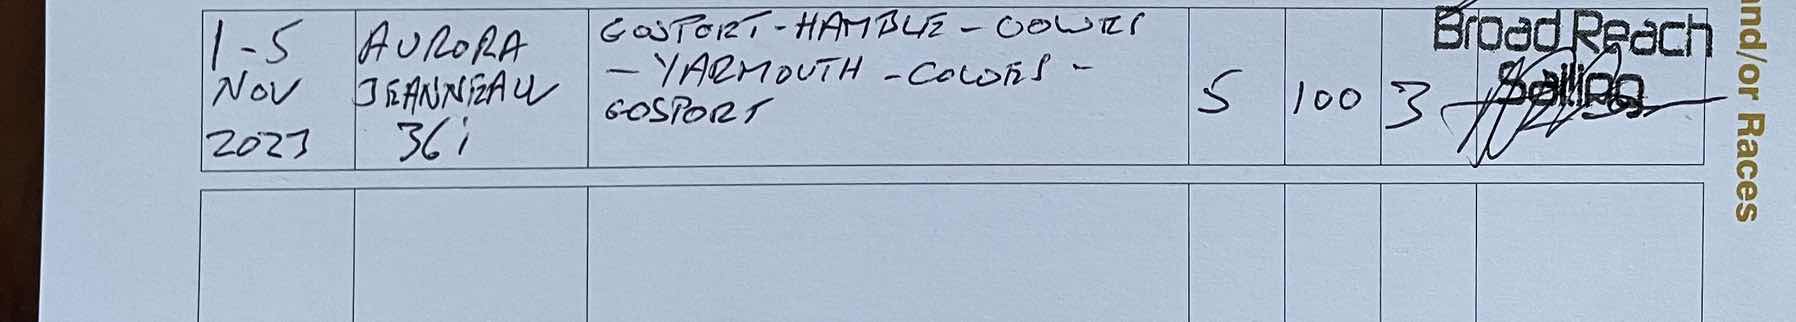 1-5
NOV
2023
AURORA
JEANNEAU
36i
GOSPORT-HAMBLE-COWES
-YARMOUTH-COWES-
GOSPORT
5
100
3
Broad Reach
Sailing
and/or Races